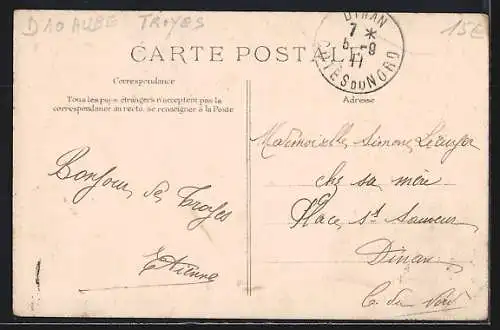 D10 AUBE TROYES
15E
DINAN
7 *
5 - 9
11
CÔTES DU NORD
CARTE POSTALE
Correspondance
Tous les pays étrangers n'acceptent pas la
correspondance au recto, se renseigner à la Poste
Bonjour de Troyes
Etienne
Adresse
Mademoiselle Simone
chs sa mère
Place St Sauveur
Dinan
C. du Nord